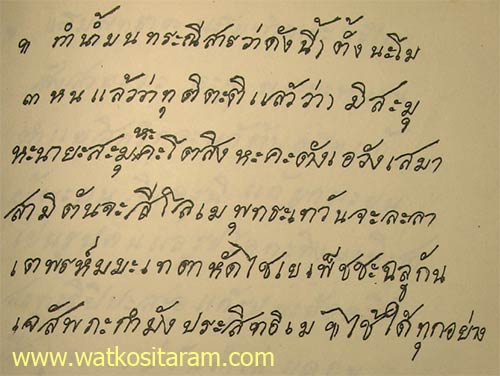 ๑ ทำน้ำมนทระณีสารว่าดังนี้ฯ ตั้งนะโม
๓ หนแล้วว่าทุติตะติแล้วว่าฯ มิสะมุ
หะนายะสะมุหะคะโตสิง หะคะตังเอวังเสมา
สามิตันจะสีโลเม พุทระเทวันจะละลา
เตพรห์มมะเทตาหัดไชเยเพ็ชชะฉลูกัน
เจสัพภะกำมังประสิทธิเม ๚ใช้ได้ทุกอย่าง
www.watkositaram.com